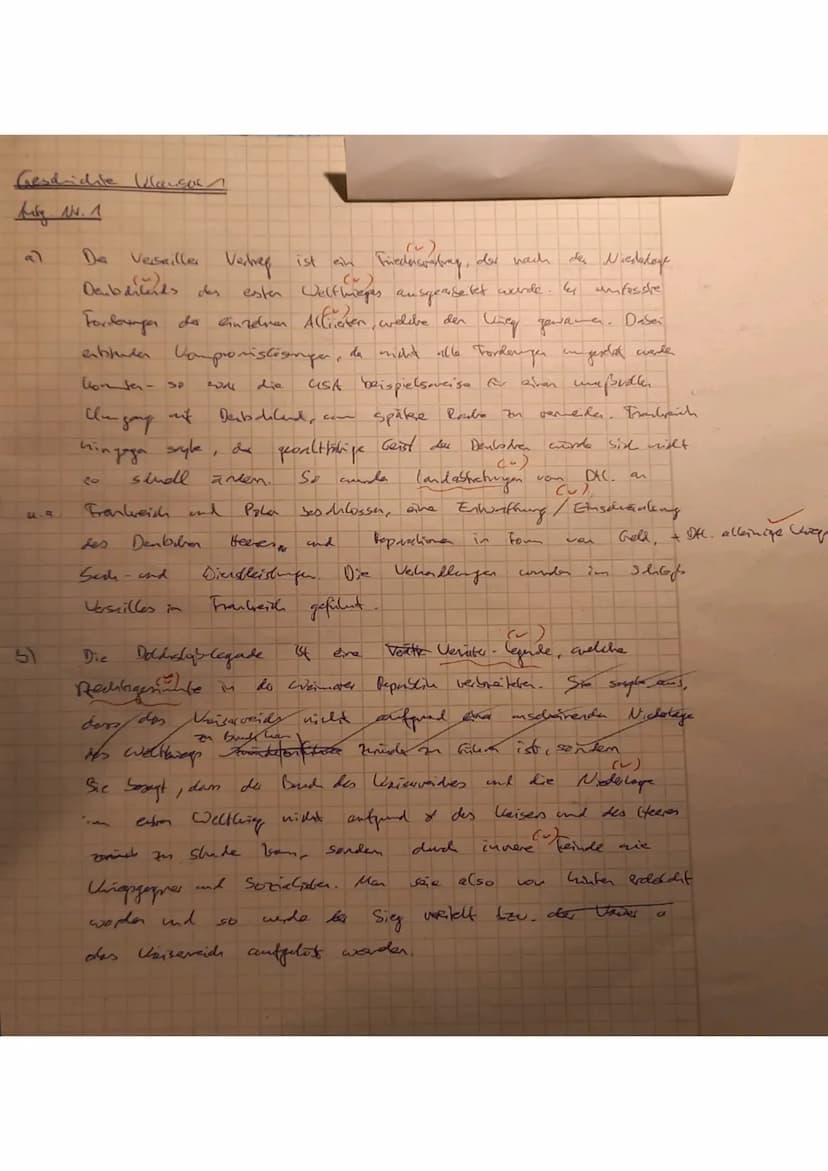 Geschichte Klausur 1
Aufg Nr. 1
a) Der Versailler Vertrag ist ein Friedensvertrag, der nach der Niederlage
Deutschlands des ersten Weltkrieges ausgearbeitet wurde. Er umfasste
Forderungen der einzelnen Alliierten, welche den Krieg gewannen. Dabei
entstanden Kompromislösungen, da nicht alle Forderungen umgesetzt werden
konnten - so war die USA beispielsweise für einen maßvollen
Umgang mit Deutschland, um spätere Rache zu vermeiden. Frankreich
hingegen sagte, der gewalttätige Geist der Deutschen würde sich nicht
so schnell ändern. So wurden Landabtretungen von Dtl. an
u.a Frankreich und Polen beschlossen, eine Entwaffnung / Einschränkung
des Deutschen Heeres, und Reparationen in Form von Geld, + Dtl. alleinige
Sach- und Dienstleistungen. Die Verhandlungen wurden im Schloß
Versailles in Frankreich geführt.
b) Die Dolchstoßlegende ist eine Verräter-Legende, welche
Rechtsgesinnte in der Weimarer Republik verbreiteten. Sie sagte aus,
dass das Kaiserreich nicht aufgrund einer Niederlage
zu
des Weltkriegs zurück zu führen ist, sondern
Sie besagt, dass der Bruch des Kaiserreiches und die Niederlage
im ersten Weltkrieg nicht aufgrund des Kaisers und des Heeres
zu stande kam, sondern durch innere Feinde wie
Kriegsgegner und Sozialisten. Man sei also von hinten erdolcht
worden und so wurde der Sieg vereitelt bzw. der Kaiser
das Kaiserreich aufgelöst worden.